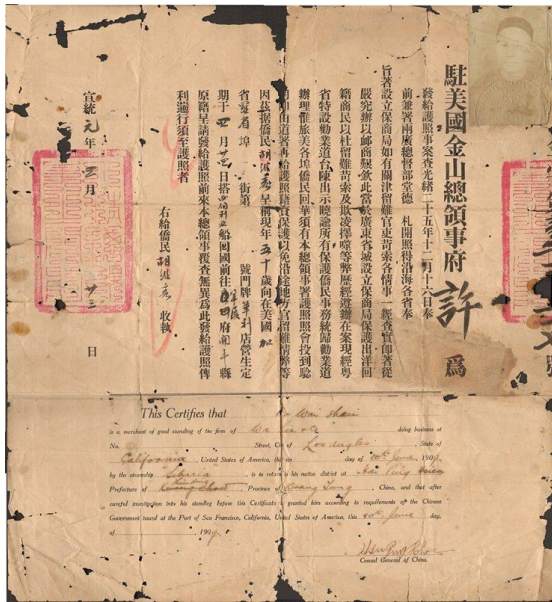 駐美國金山總領事府 許 為
發給護照事案查光緒二十五年十二月十六日奉
前兼署兩廣總督部堂德 札開照得沿海各省奉
旨著設立保商局如有關津留難官吏苛索各情事一經查實即著從
嚴究辦以卹商艱欽此當於廣東省城設立保商局保護出洋回
籍商民以杜留難苛索及欺凌擇噬等弊歷經遵辦在案現經粵
省特設勸業道台陳出示曉諭所有保護僑民事務統歸勸業道
辦理惟旅美各僑民回華須有本總領事署護照會投到驗
即由道署再給護照藉資保護以免沿途地方官留難情弊等
因茲據僑民胡 呈稱現年五十歲向在美國加
省羅省埠 街第 號門牌華利店營生定
期于 月 日搭 船回國前往 府開平縣
原籍呈請發給護照前來本總領事覆查無異為此發給護照俾
利遄行須至護照者
右給僑民胡 收執
宣統元年 月 廿三 日
This Certifies that Wu Wai Shau
is a merchant of good standing of the firm of Wa Lee & Co doing business at
No. Street, City of Los Angles, State of
California, United States of America, that on day of 10th June 1909,
by the steamship "Siberia" is to return to his native district at Hoi Ping Hsien
Prefecture of Province of Quang Tung China, and that after
careful investigation into his standing before this Certificate is granted him according to requirements of the Chinese
Government issued at the Port of San Francisco, California, United States of America, this 10th June day,
of 1909.
Consul General of China.